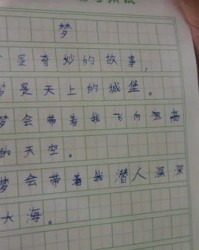 梦
是奇妙的故事，
梦是天上的城堡。
梦会带着我飞向
的天空。
梦会带着我潜入深深
大海。